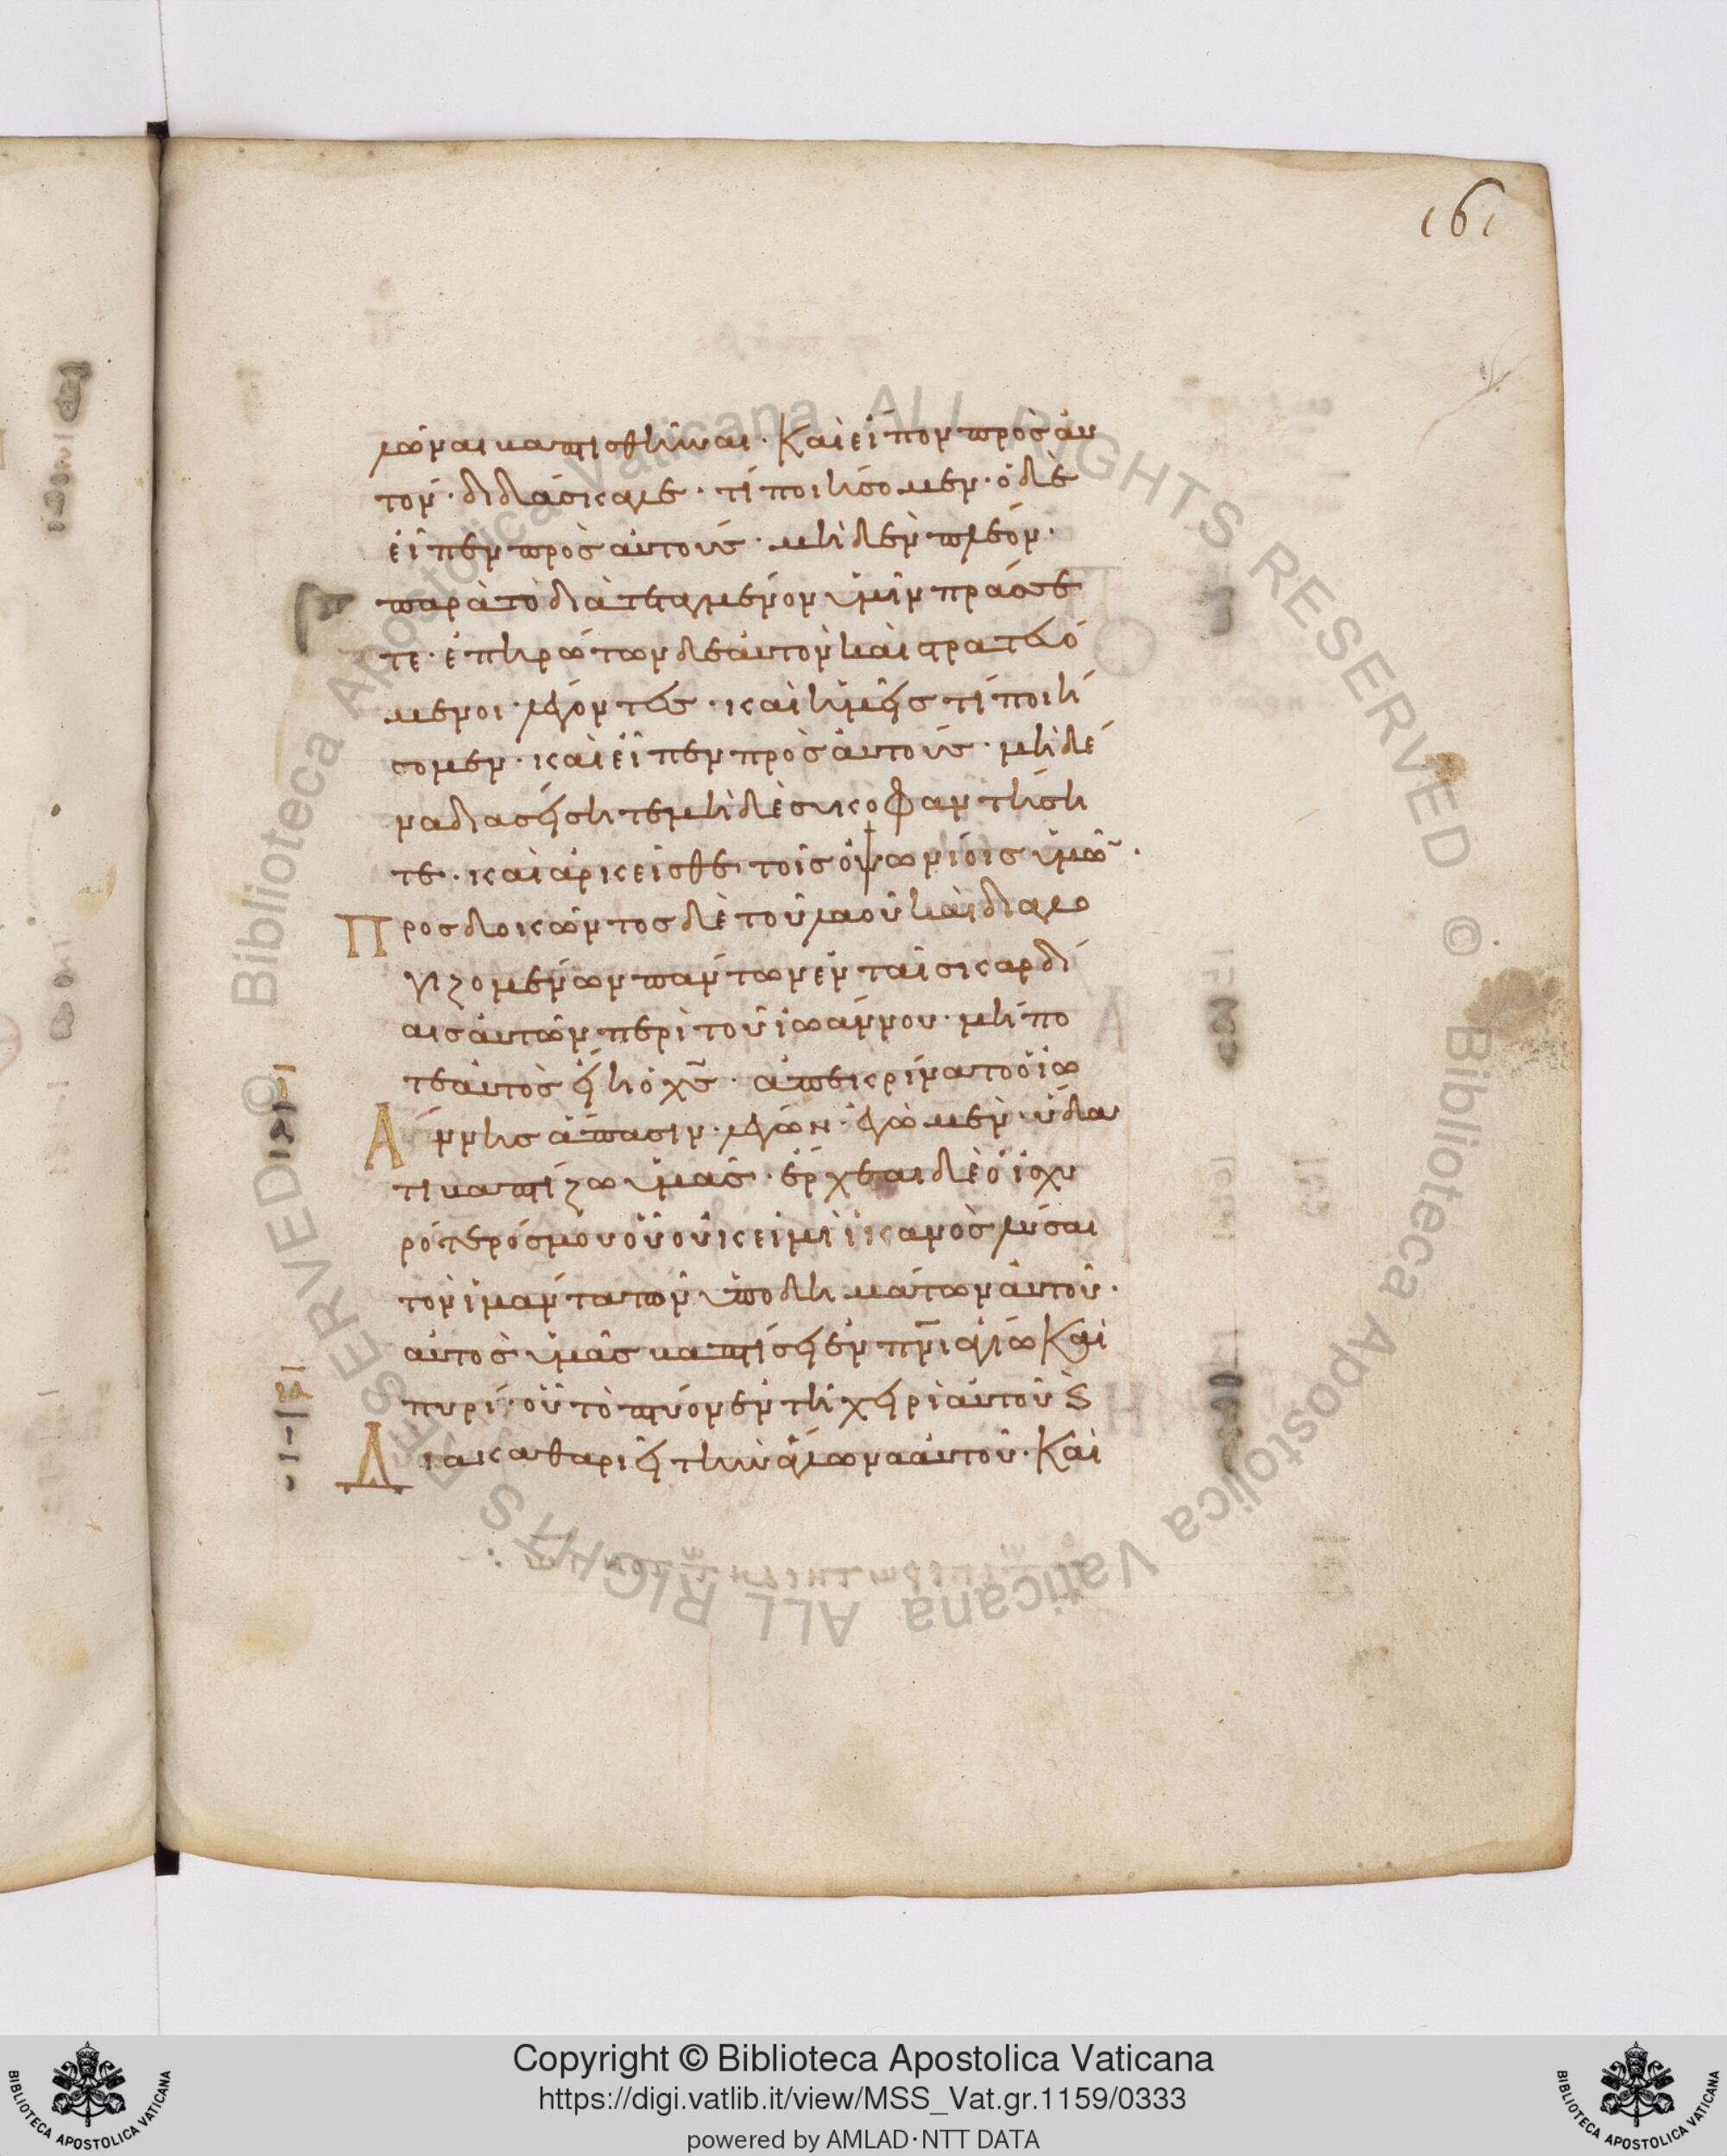 161
λῶναι βαπτισθῆναι· Καὶ εἶπον πρὸς αὐ
τόν· διδάσκαλε· τί ποιήσομεν· ὁ δὲ
εἶπεν πρὸς αὐτούς· μηδὲν πλέον·
παρὰ τὸ διατεταγμένον ὑμῖν πράσσε
τε· ἐπηρώτων δὲ αὐτὸν καὶ στρατευό
μενοι λέγοντες· καὶ ἡμεῖς τί ποιή
σομεν· καὶ εἶπεν πρὸς αὐτούς· μηδέ
να διασείσητε μηδὲ συκοφαντήση
τε· καὶ ἀρκεῖσθε τοῖς ὀψωνίοις ὑμῶ̅·
Προσδοκῶντος δὲ τοῦ λαοῦ καὶ διαλο
γιζομένων πάντων ἐν ταῖς καρδί
αις αὐτῶν περὶ τοῦ ἰωάννου· μήπο
τε αὐτὸς εἴη ὁ χς̅· ἀπεκρίνατο ὁ ἰω
Άννης ἅπασιν· λέγων· ἐγὼ μὲν ὕδα
τι βαπτίζω ὑμᾶς· ἔρχεται δὲ ὁ ἰσχυ
ρότερός μου οὗ οὐκ εἰμὶ ἱκανὸς λῦσαι
τὸν ἱμάντα τῶν ὑποδημάτων αὐτοῦ·
αὐτὸς ὑμᾶς βαπτίσει ἐν πν̅ι ἁγίω Καὶ
πυρί· οὗ τὸ πτύον ἐν τῆ χειρὶ αὐτοῦ ϗ
Διακαθαριεῖ τὴν ἅλωνα αὐτοῦ· Καὶ
© Biblioteca Apostolica Vaticana ALL RIGHTS RESERVED © Biblioteca Apostolica Vaticana ALL RIGHTS RESERVED
Copyright © Biblioteca Apostolica Vaticana
https://digi.vatlib.it/view/MSS_Vat.gr.1159/0333
powered by AMLAD·NTT DATA
BIBLIOTECA APOSTOLICA VATICANA
BIBLIOTECA APOSTOLICA VATICANA